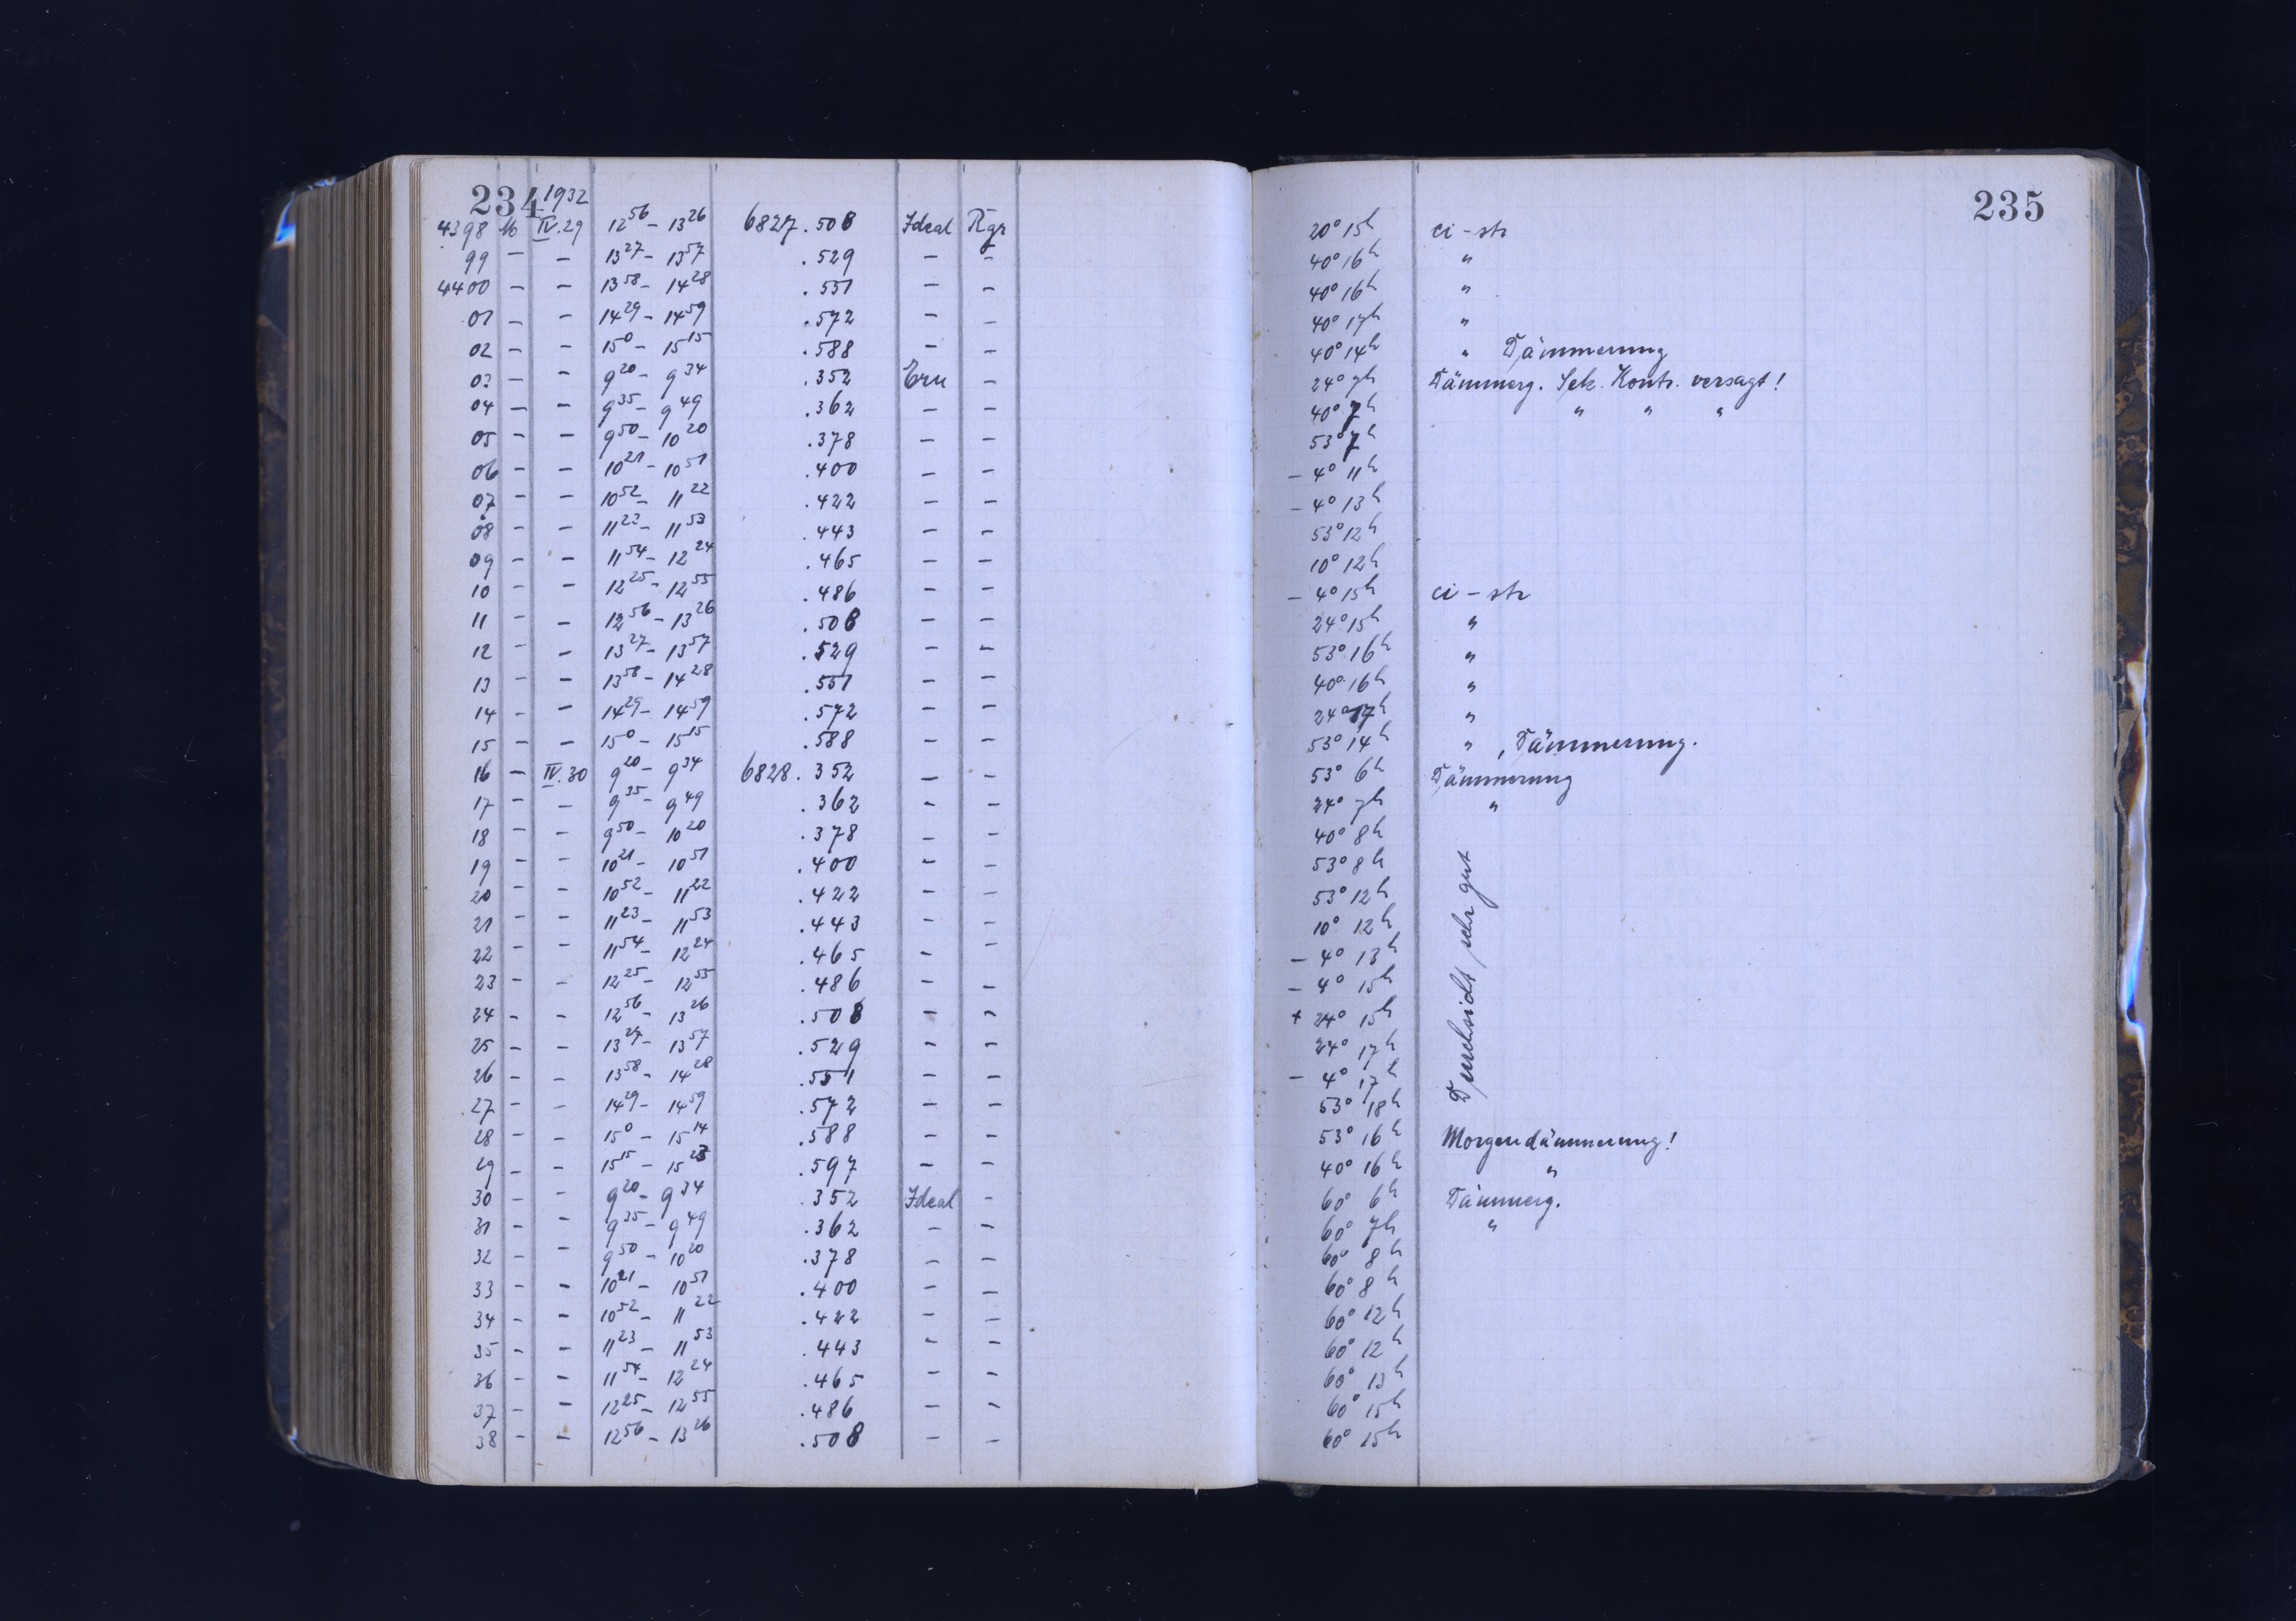 234 1932
4398 Mo IV.29 12 56 – 13 26 6827.508 Ideal Rgr 20° 15h ci - str
99 – – 13 27 – 13 57 .529 – – 40° 16h "
4400 – – 13 58 – 14 28 .551 – – 40° 16h "
01 – – 14 29 – 14 59 .572 – – 40° 17h "
02 – – 15 0 – 15 15 .588 – – 40° 14h " Dämmerung
03 – – 9 20 – 9 34 .352 Ern – 24° 7h Dämmerg. Sek. Kontr. versagt!
04 – – 9 35 – 9 49 .362 – – 40° 7h " " "
05 – – 9 50 – 10 20 .378 – – 53° 7h
06 – – 10 21 – 10 51 .400 – – – 4° 11h
07 – – 10 52 – 11 22 .422 – – – 4° 13h
08 – – 11 23 – 11 53 .443 – – 53° 12h
09 – – 11 54 – 12 24 .465 – – 10° 12h
10 – – 12 25 – 12 55 .486 – – – 4° 15h ci - str
11 – – 12 56 – 13 26 .508 – – 24° 15h "
12 – – 13 27 – 13 57 .529 – – 53° 16h "
13 – – 13 58 – 14 28 .551 – – 40° 16h "
14 – – 14 29 – 14 59 .572 – – 24° 17h "
15 – – 15 0 – 15 15 .588 – – 53° 14h " , Dämmerung.
16 – IV.30 9 20 – 9 34 6828.352 – – 53° 6h Dämmerung
17 – – 9 35 – 9 49 .362 – – 24° 7h "
18 – – 9 50 – 10 20 .378 – – 40° 8h
19 – – 10 21 – 10 51 .400 – – 53° 8h
20 – – 10 52 – 11 22 .422 – – 53° 12h
21 – – 11 23 – 11 53 .443 – – 10° 12h
22 – – 11 54 – 12 24 .465 – – – 4° 13h
23 – – 12 25 – 12 55 .486 – – – 4° 15h
24 – – 12 56 – 13 26 .508 – – + 24° 15h
25 – – 13 27 – 13 57 .529 – – 24° 17h
26 – – 13 58 – 14 28 .551 – – – 4° 17h
27 – – 14 29 – 14 59 .572 – – 53° 18h
Durchsicht sehr gut
28 – – 15 0 – 15 14 .588 – – 53° 16h Morgendämmerung!
29 – – 15 15 – 15 25 .597 – – 40° 16h "
30 – – 9 20 – 9 34 .352 Ideal – 60° 6h Dämmerg.
31 – – 9 35 – 9 49 .362 – – 60° 7h "
32 – – 9 50 – 10 20 .378 – – 60° 8h
33 – – 10 21 – 10 51 .400 – – 60° 8h
34 – – 10 52 – 11 22 .422 – – 60° 12h
35 – – 11 23 – 11 53 .443 – – 60° 12h
36 – – 11 54 – 12 24 .465 – – 60° 13h
37 – – 12 25 – 12 55 .486 – – 60° 15h
38 – – 12 56 – 13 26 .508 – – 60° 15h
235